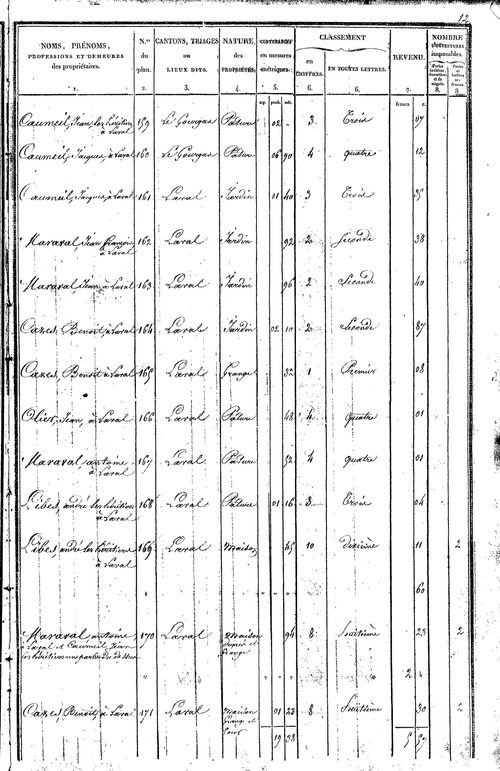 12
NOMS, PRÉNOMS,
PROFESSIONS ET DEMEURES
des propriétaires.
N.os
du
plan.
CANTONS, TRIAGES
ou
LIEUX DITS.
NATURE
des
PROPRIÉTÉS.
CONTENANCES
en mesures
métriques.
CLASSEMENT
en
CHIFFRES.
EN TOUTES LETTRES.
REVENU.
NOMBRE
D'OUVERTURES
imposables.
1. 2. 3. 4. 5. 6. 6. 7. 8. 8.
francs. c.
Caumeil, Jean, les héritiers 159 Le Gourgas Pature 02 " 3 Trois 07
à Laval
Caumeil, Jacques, à Laval 160 Le Gourgas Pature 06 90 4 quatre 12
Caumeil, Jacques, à Laval 161 Laval Jardin 01 40 3 Trois
Maraval, Jean françois 162 Laval Jardin 92 2 Seconde 38
à Laval
Maraval, Jean, à Laval 163 Laval Jardin 96 2 Seconde 40
Cazes, Benoit, à Laval 164 Laval Jardin 02 10 2 Seconde 87
Cazes, Benoit à Laval 165 Laval Grange 32 1 Premier 08
Olier, Jean, à Laval 166 Laval Pature 48 4 quatre 01
Maraval, antoine 167 Laval Pature 52 4 quatre 01
à Laval
Libes, andré les héritiers 168 Laval Pature 01 16 3 Trois 04
à Laval
Libes, andré les héritiers 169 Laval maison 45 10 dixième 11 2
à Laval
" " " 60
Maraval, antoine, 170 Laval Maison 94 8 huitième 23 2
à Laval et Caumeil, Jean
les héritiers une partie du dessus
grange
" " 2 "
Cazes, Benoit, à Laval 171 Laval Maison 01 23 8 huitième 30 2
grange et
Cour
19 38 5 57